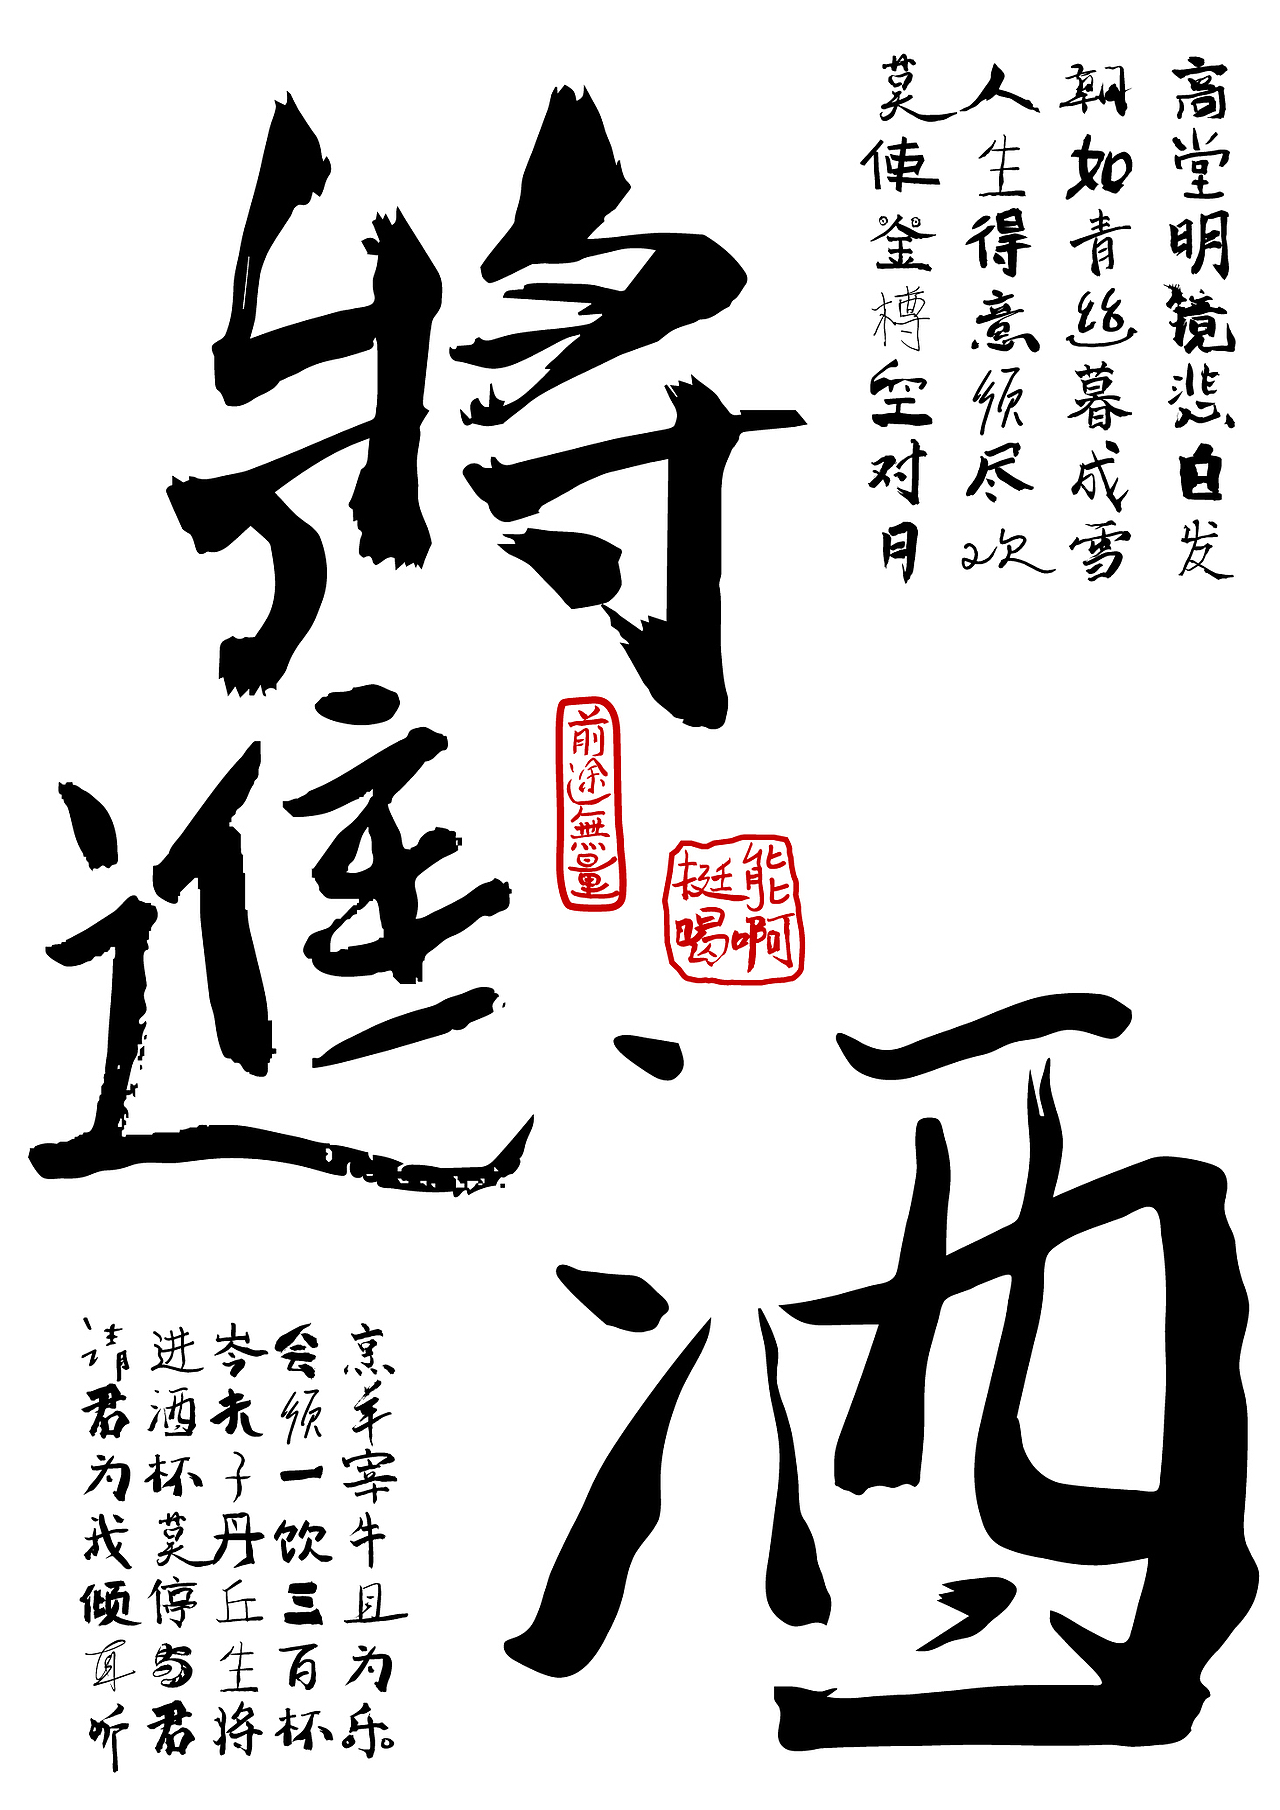 高堂明镜悲白发
朝如青丝暮成雪
人生得意须尽欢
莫使金樽空对月
將
進
酒
前途無量
挺能
喝啊
烹羊宰牛且为乐
会须一饮三百杯
岑夫子丹丘生将
进酒杯莫停与君
请君为我倾耳听